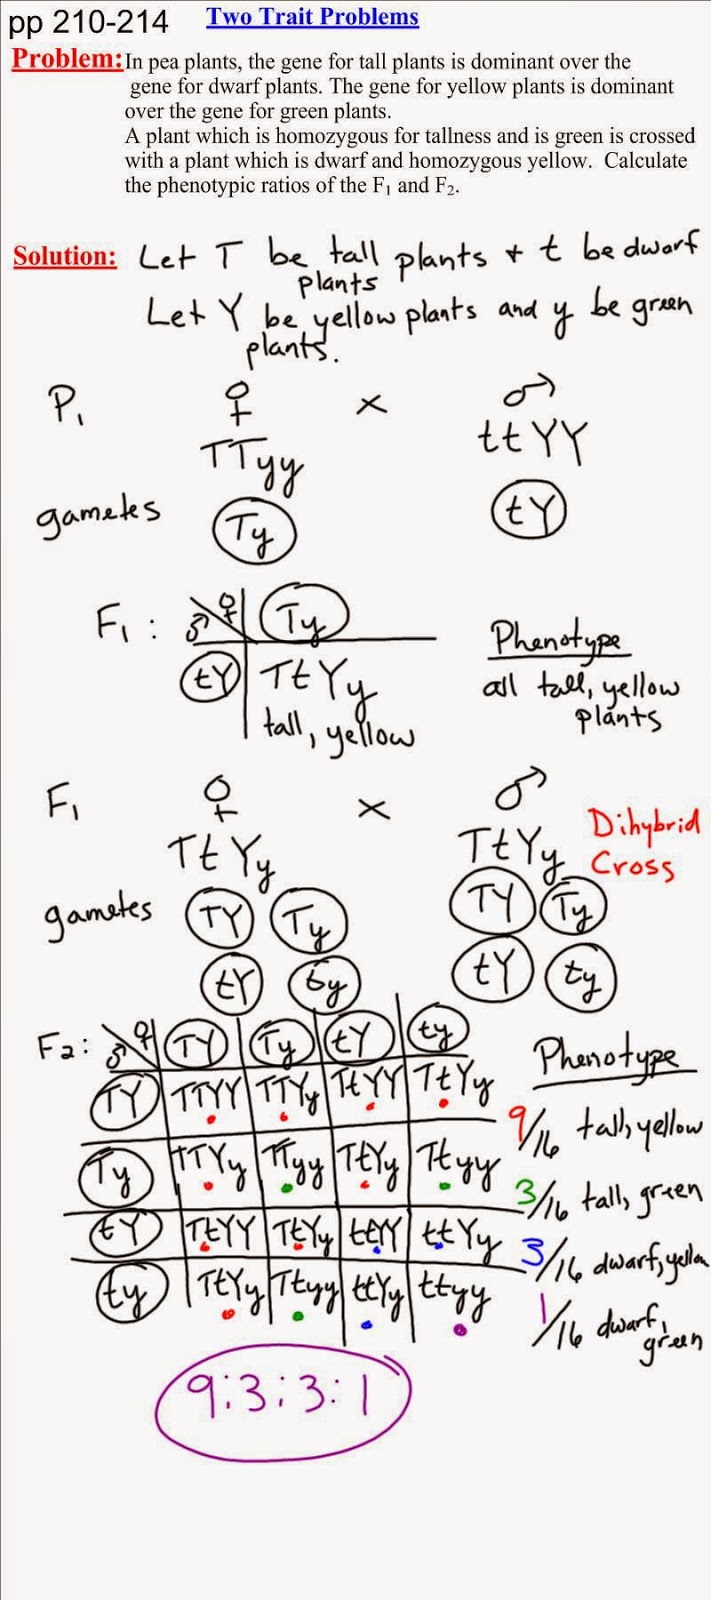 pp 210-214 Two Trait Problems
Problem: In pea plants, the gene for tall plants is dominant over the
gene for dwarf plants. The gene for yellow plants is dominant
over the gene for green plants.
A plant which is homozygous for tallness and is green is crossed
with a plant which is dwarf and homozygous yellow. Calculate
the phenotypic ratios of the F₁ and F₂.
Solution: Let T be tall plants + t be dwarf
plants
Let Y be yellow plants and y be green
plants.
P₁ ♀ × ♂
TTyy ttYY
gametes Ty tY
F₁: ♂ ♀ Ty
tY TtYy
tall, yellow
Phenotype
all tall, yellow
plants
F₁ ♀ × ♂
TtYy TtYy
Dihybrid
Cross
gametes TY Ty TY Ty
tY ty tY ty
F₂: ♂ ♀ TY Ty tY ty
TY TTYY TTYy TtYY TtYy
Ty TTYy TTyy TtYy Ttyy
tY TtYY TtYy ttYY ttYy
ty TtYy Ttyy ttYy ttyy
Phenotype
9/16 tall, yellow
3/16 tall, green
3/16 dwarf, yellow
1/16 dwarf,
green
9:3:3:1